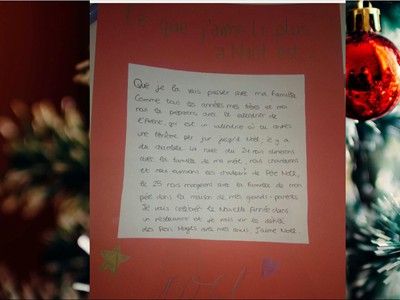 Ce que j'aime le plus
à Noël est
Que je la vais passer avec ma famille
Comme tous les années mes frères et moi
nous la préparons avec le calendrier de
l'Avent, qui est un calendrier où on ouvre
une fenêtre par jour jusqu'à Noël, il y a
du chocolat. La nuit du 24 nous dinerons
avec la famille de ma mère, nous chanterons
et nous aurons les cadeaux de Père Noël,
le 25 nous mangerons avec la famille de mon
père dans la maison de mes grands-parents
Je vais célébrer la Nouvelle Année dans
un restaurant et je vais voir le défilé
des Rois Mages avec mes amis. J'aime Noël.